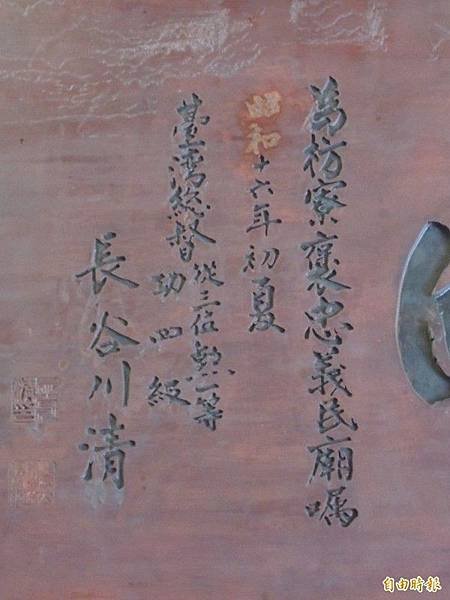 為枋寮褒忠義民廟嘱
昭和十六年初夏
臺灣總督從三位勲一等
功四級
長谷川清
自由時報